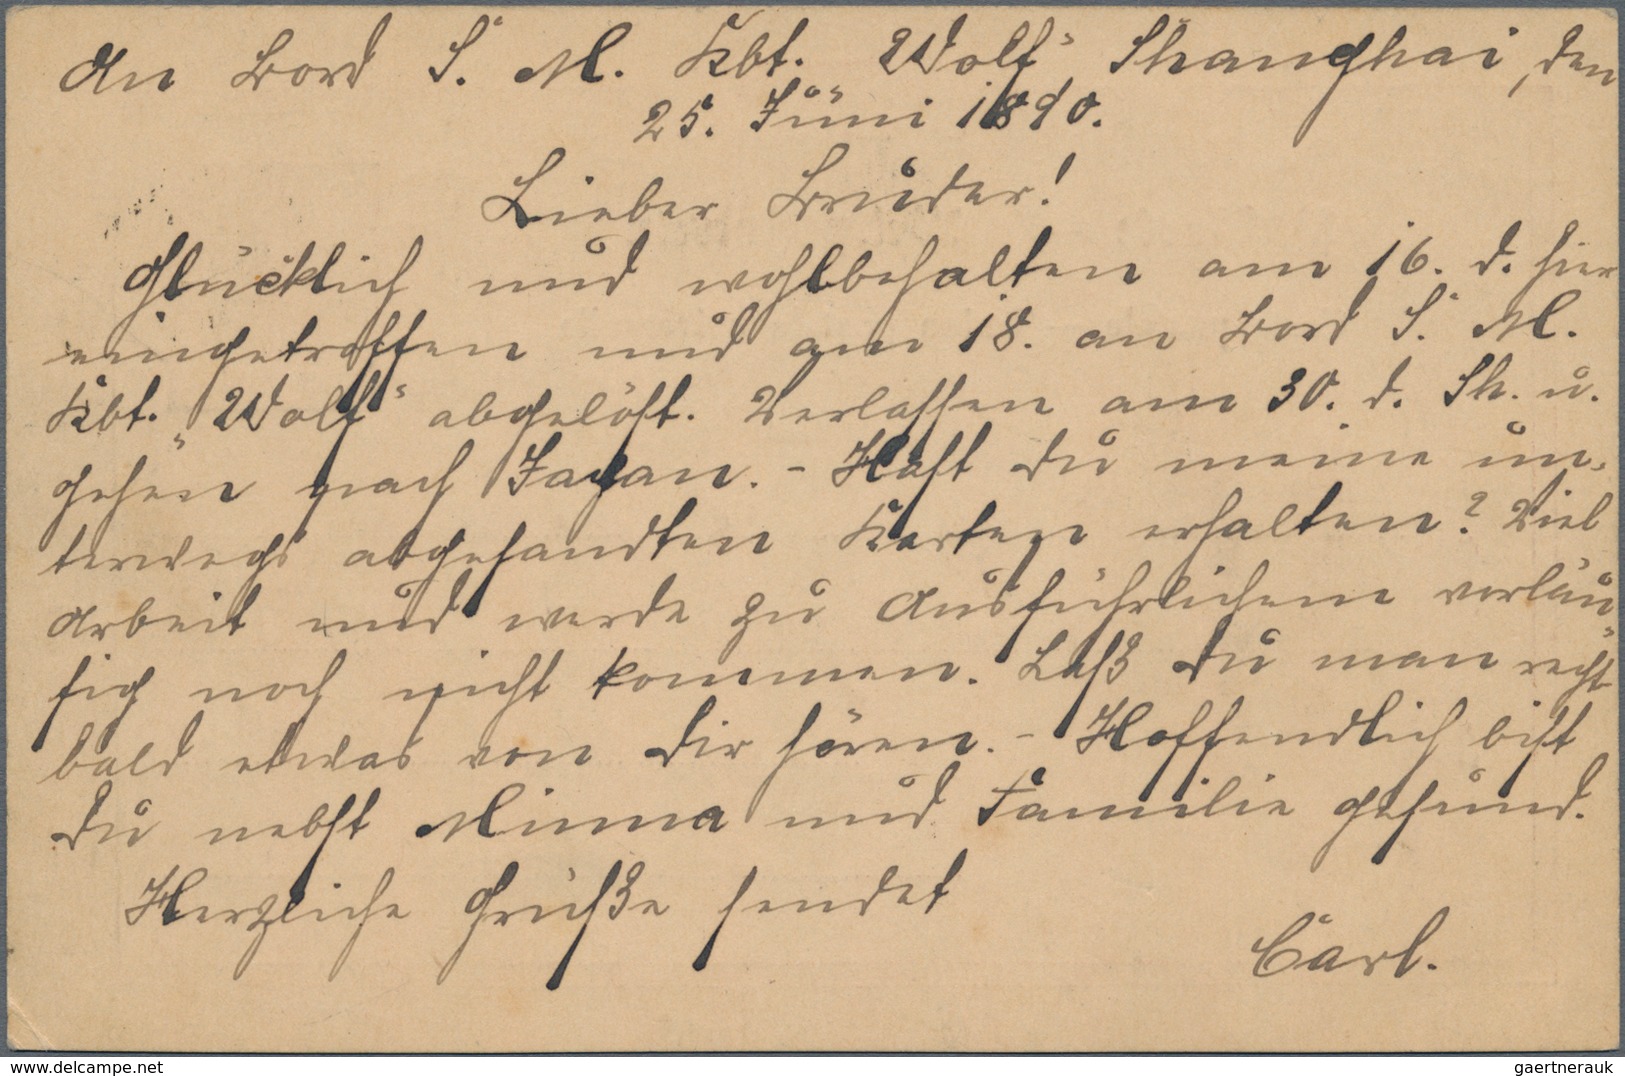 An Bord S. M. Kbt. Wolf" Shanghai, den
25. Juni 1890.
Lieber Bruder!
Glücklich und wohlbehalten am 16. d. hier
eingetroffen und am 18. an Bord S. M.
Kbt. "Wolf" abgelöst. Verlassen am 30. d. Sh. u.
gehen nach Japan. - Hast Du meine un-
terwegs abgesandten Karten erhalten? Viel
Arbeit und werde zu Ausführlichem vorläu-
fig noch nicht kommen. Laß Du man recht
bald etwas von Dir hören. - Hoffendlich bist
Du nebst Minna und Familie gesund.
Herzliche Grüße sendet
Carl.
www.delcampe.net
gaertnerauk